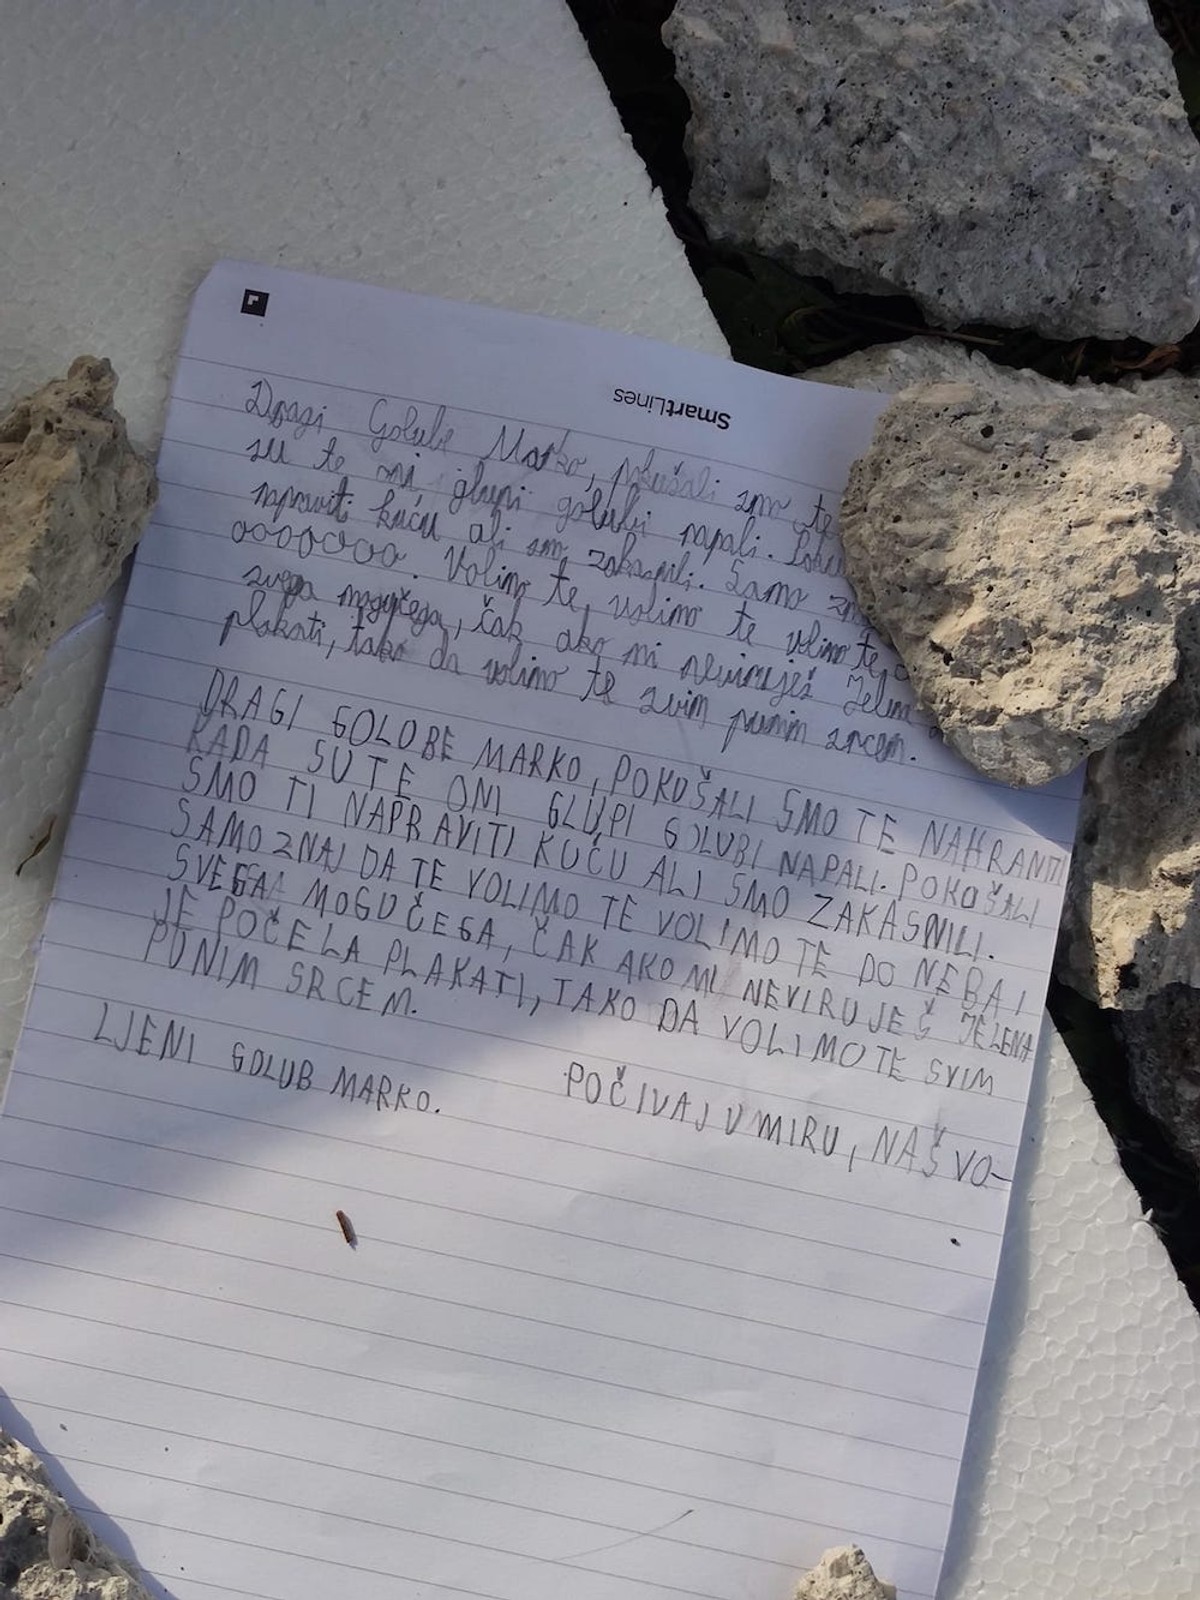 SmartLines
Dragi Golube Marko, pokušali smo te
su te oni glupi golubi napali.
napraviti kuću ali smo zakasnili. Samo
oooooooo. Volimo te, volimo te volimo te,
svega mogučega, čak ako mi neviruješ Jelena
plakati, tako da volimo te svim punim srcem.
DRAGI GOLOBE MARKO, POKUŠALI SMO TE NAHRANITI
KADA SU TE ONI GLUPI GOLUBI NAPALI. POKUŠALI
SMO TI NAPRAVITI KUĆU ALI SMO ZAKASNILI.
SAMO ZNAJ DA TE VOLIMO TE VOLIMO TE DO NEBA I
SVEGA MOGUČEGA, ČAK AKO MI NEVIRUJEŠ JELENA
JE POČELA PLAKATI, TAKO DA VOLIMO TE SVIM
PUNIM SRCEM.
POČIVAJ U MIRU, NAŠ VO-
LJENI GOLUB MARKO.